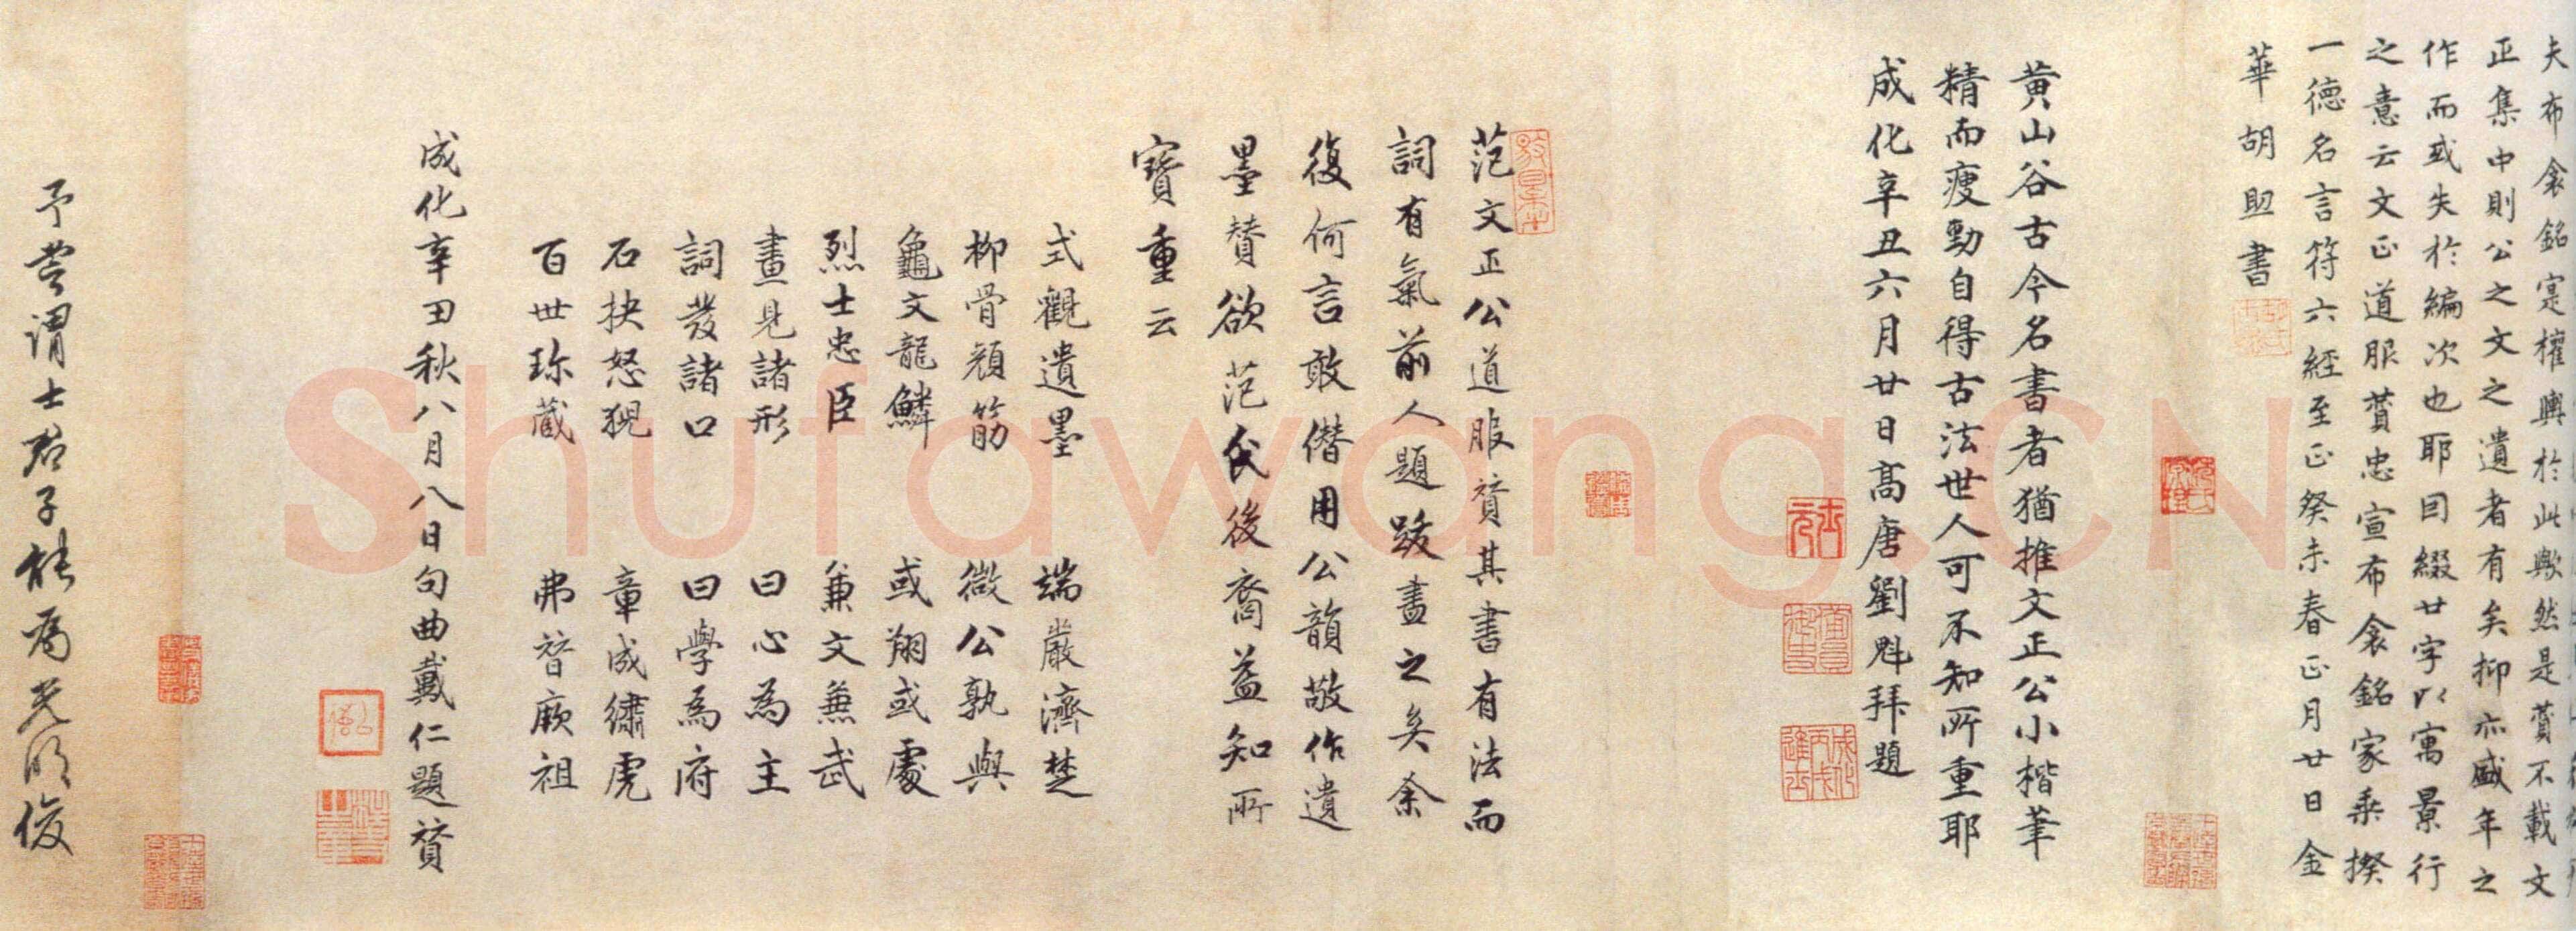 夫布衾銘寔權輿於此歟然是賛不載文
正集中則公之文之遺者有矣抑亦盛年之
作而或失於編次也耶因綴廿字以寓景行
之意云文正道服賛忠宣布衾銘家乘揆
一德名言符六經至正癸未春正月廿日金
華胡助書
黄山谷古今名書者猶推文正公小楷筆
精而瘦勁自得古法世人可不知所重耶
成化辛丑六月廿日高唐劉魁拜題
范文正公道服賛其書有法而
詞有氣前人題跋盡之矣余
復何言敢僣用公韻敬作遺
墨賛欲范氏後裔益知所
寶重云
式觀遺墨 端嚴濟楚
柳骨顔筋 微公孰與
龜文龍鱗 或翔或處
烈士忠臣 兼文兼武
畫見諸形 曰心為主
詞發諸口 曰學為府
石抉怒猊 章成繡虎
百世珎蔵 弗替厥祖
成化辛丑秋八月八日句曲戴仁題賛
予嘗謂士君子能爲光明俊
Shufawang.CN